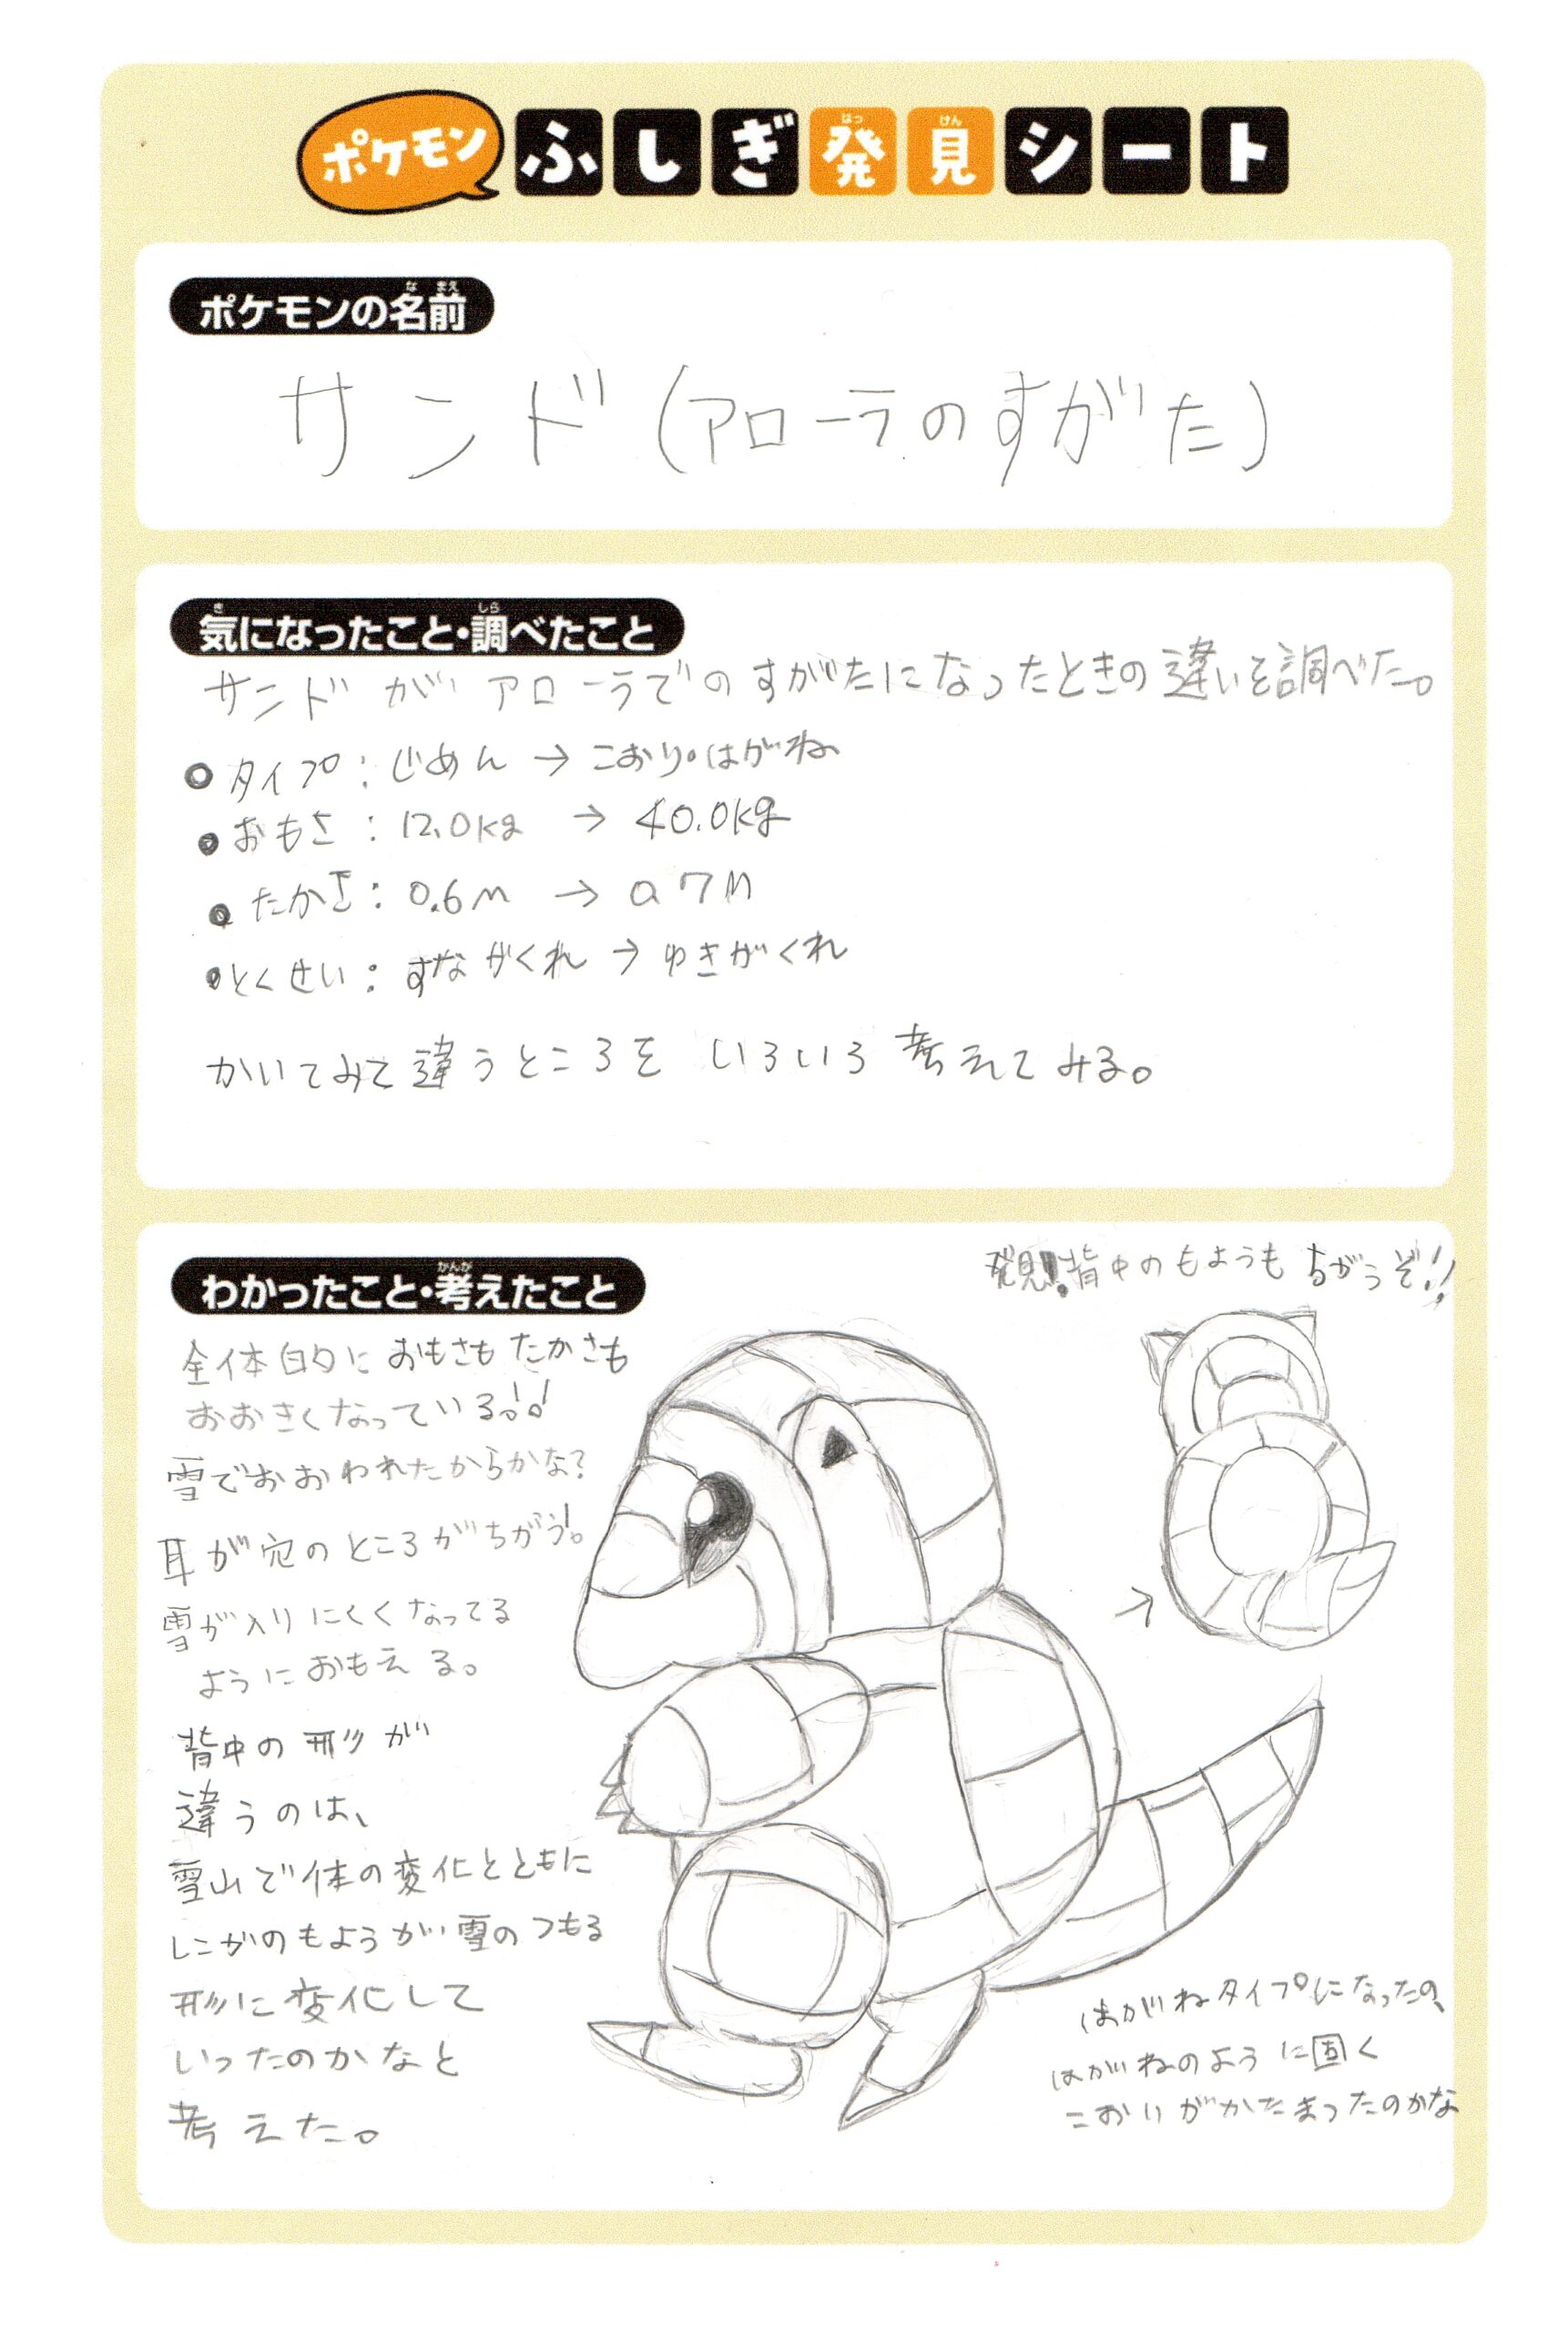 ポケモンふしぎ発見シート
ポケモンの名前
サンド(アローラのすがた)
気になったこと・調べたこと
サンドがアローラでのすがたになったときの違いを調べた。
タイプ:じめん→こおり・はがね
おもさ:12.0kg→40.0kg
たかさ:0.6m→0.7m
とくせい:すながくれ→ゆきがくれ
かいてみて違うところをいろいろ考えてみる。
わかったこと・考えたこと
発見!背中のもようもちがうぞ!!
全体的におもさもたかさも
おおきくなっている!!
雪でおおわれたからかな?
耳が穴のところがちがう!
雪が入りにくくなってる
ようにおもえる。
背中の形が
違うのは、
雪山で体の変化とともに
せなかのもようが雪のつもる
形に変化して
いったのかなと
考えた。
はがねタイプになったの、
はがねのように固く
こおりがかたまったのかな